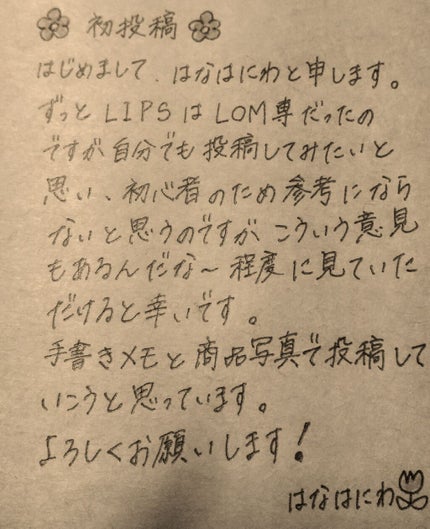 初投稿
はじめまして、はなはにわと申します。
ずっとLIPSはLOM専だったの
ですが自分でも投稿してみたいと
思い、初心者のため参考になら
ないと思うのですが こういう意見
もあるんだな〜 程度に見ていた
だけると幸いです。
手書きメモと商品写真で投稿して
いこうと思っています。
よろしくお願いします!
はなはにわ